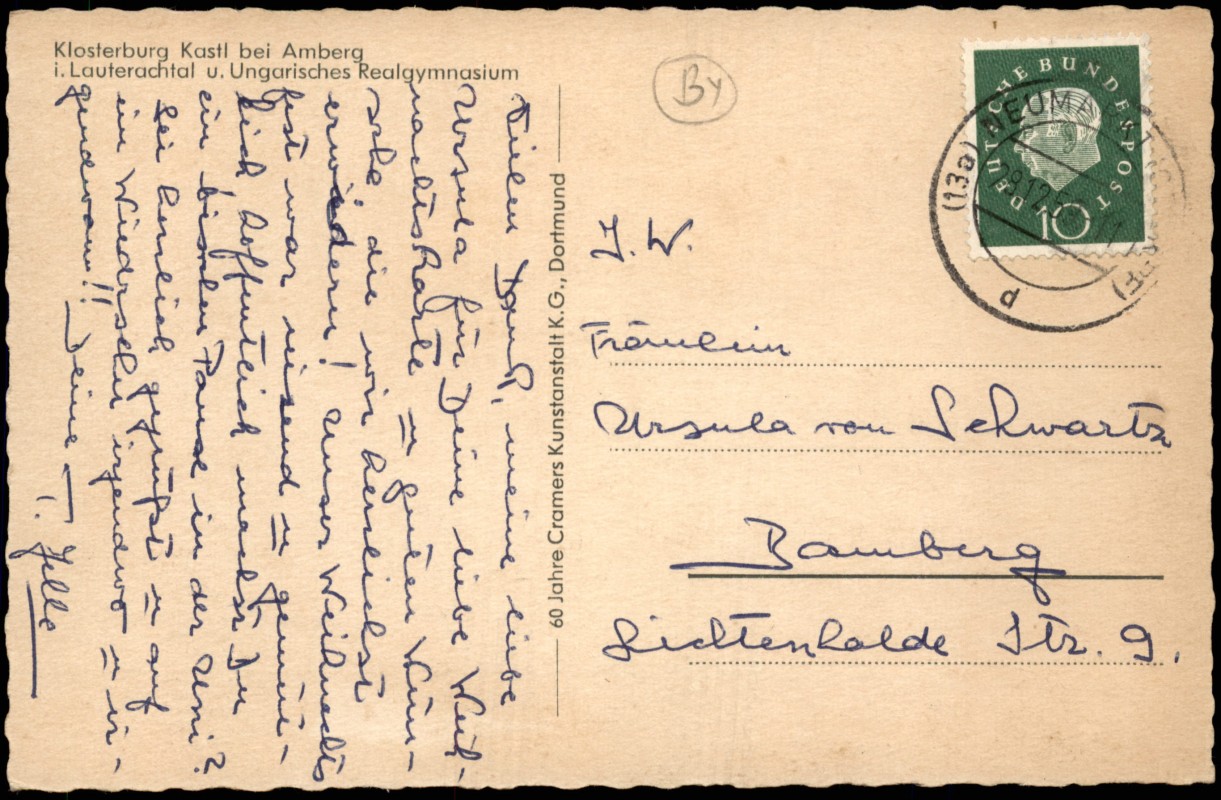 Klosterburg Kastl bei Amberg
i. Lauterachtal u. Ungarisches Realgymnasium
Vielen Dank, meine liebe
Ursula für Deine liebe Weih-
nachtskarte u. guten Wün-
sche die wir herzlichst
erwiedern! Unser Weihnachts
fest war reisend u. gemüt-
lich hoffentlich machst Du
ein bischen Pause in der Uni?
Sei herzlich gegrüßt u. auf
ein Wiedersehn irgendwo u. ir-
gendwann!! Deine T. Jella
60 Jahre Cramers Kunstanstalt K.G., Dortmund
By
DEUTSCHE BUNDESPOST
10
(13a) NEUMA
28.12.5
(OPF)
p
I. W.
Fräulein
Ursula von Schwartz
Bamberg
Lichtenhalde Str. 9.